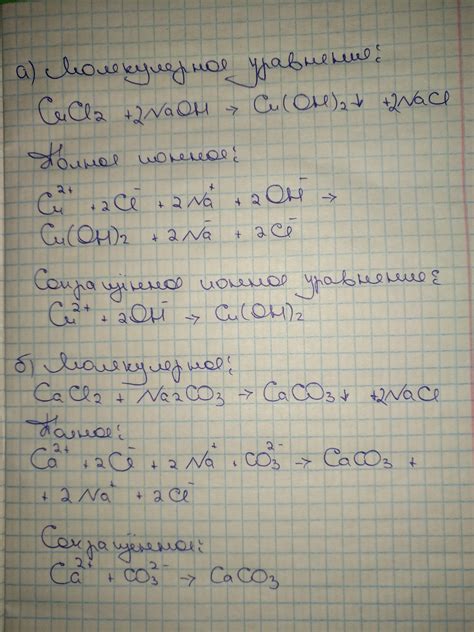 а) Молекулярное уравнение:
CuCl2 + 2NaOH → Cu(OH)2↓ + 2NaCl
Полное ионное:
Cu²⁺ + 2Cl⁻ + 2Na⁺ + 2OH⁻ →
Cu(OH)2 + 2Na⁻ + 2Cl⁻
Сокращённое ионное уравнение:
Cu²⁺ + 2OH⁻ → Cu(OH)2
б) Молекулярное:
CaCl2 + Na2CO3 → CaCO3↓ + 2NaCl
Полное:
Ca²⁺ + 2Cl⁻ + 2Na⁺ · CO3²⁻ → CaCO3 +
+ 2Na⁺ + 2Cl⁻
Сокращённое:
Ca²⁺ + CO3²⁻ → CaCO3